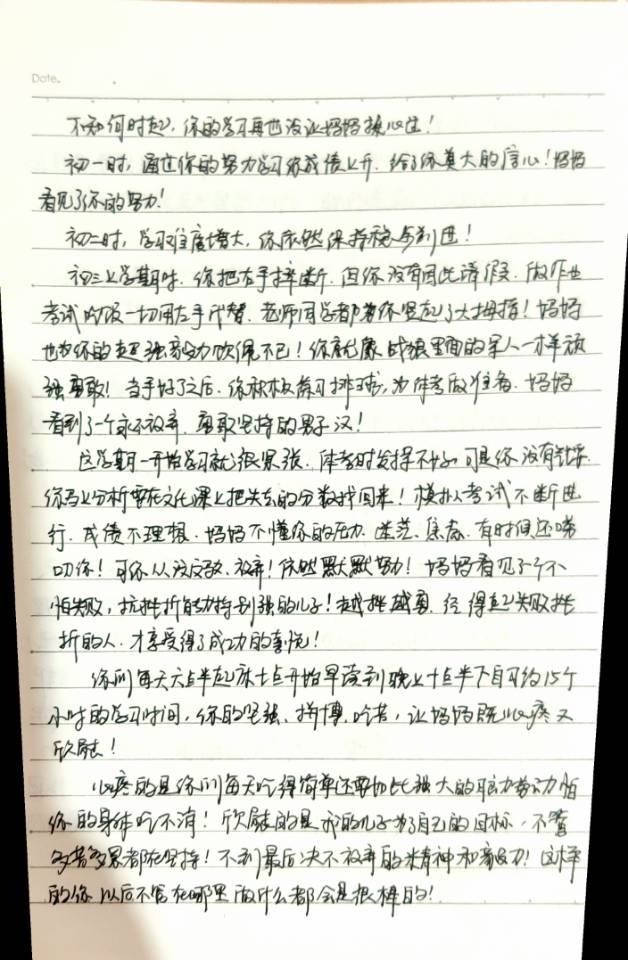 Date.
不知何时起，你的学习再也没让妈妈操心过！
初一时，通过你的努力学习你成绩上升，给了你莫大的信心！妈妈
看见了你的努力！
初二时，学习难度增大，你依然保持稳步前进！
初三上学期时，你把右手摔断，但你没有因此请假，做作业
考试吃饭一切用左手代替，老师同学都为你竖起了大拇指！妈妈
也为你的超强毅力钦佩不已！你就像战狼里面的军人一样顽
强勇敢！当手好了之后，你积极练习排球，为体考做准备，妈妈
看到了一个永不放弃、勇敢坚持的男子汉！
这学期一开始学习就很紧张，体考时发挥不好，可是你没有
你马上分析要在文化课上把失去的分数找回来！模拟考试不断进
行，成绩不理想，妈妈不懂你的压力、迷茫、焦虑，有时候还唠
叨你！可你从没放弃！依然默默努力！妈妈看见了一个不
怕失败，抗挫折能力特别强的儿子！越挫越勇，经得起失败挫
折的人，才享受得了成功的喜悦！
你们每天六点半起床七点开始早读到晚上十点半下自习约15个
小时的学习时间，你的坚强、拼搏、吃苦，让妈妈既心疼又
欣慰！
心疼的是你们每天吃得简单还要如此强大的脑力劳动怕
你的身体吃不消！欣慰的是我的儿子为了自己的目标，不管
多苦多累都在坚持！不到最后决不放弃的精神和毅力！这样
的你以后不管在哪里做什么都会是很棒的！